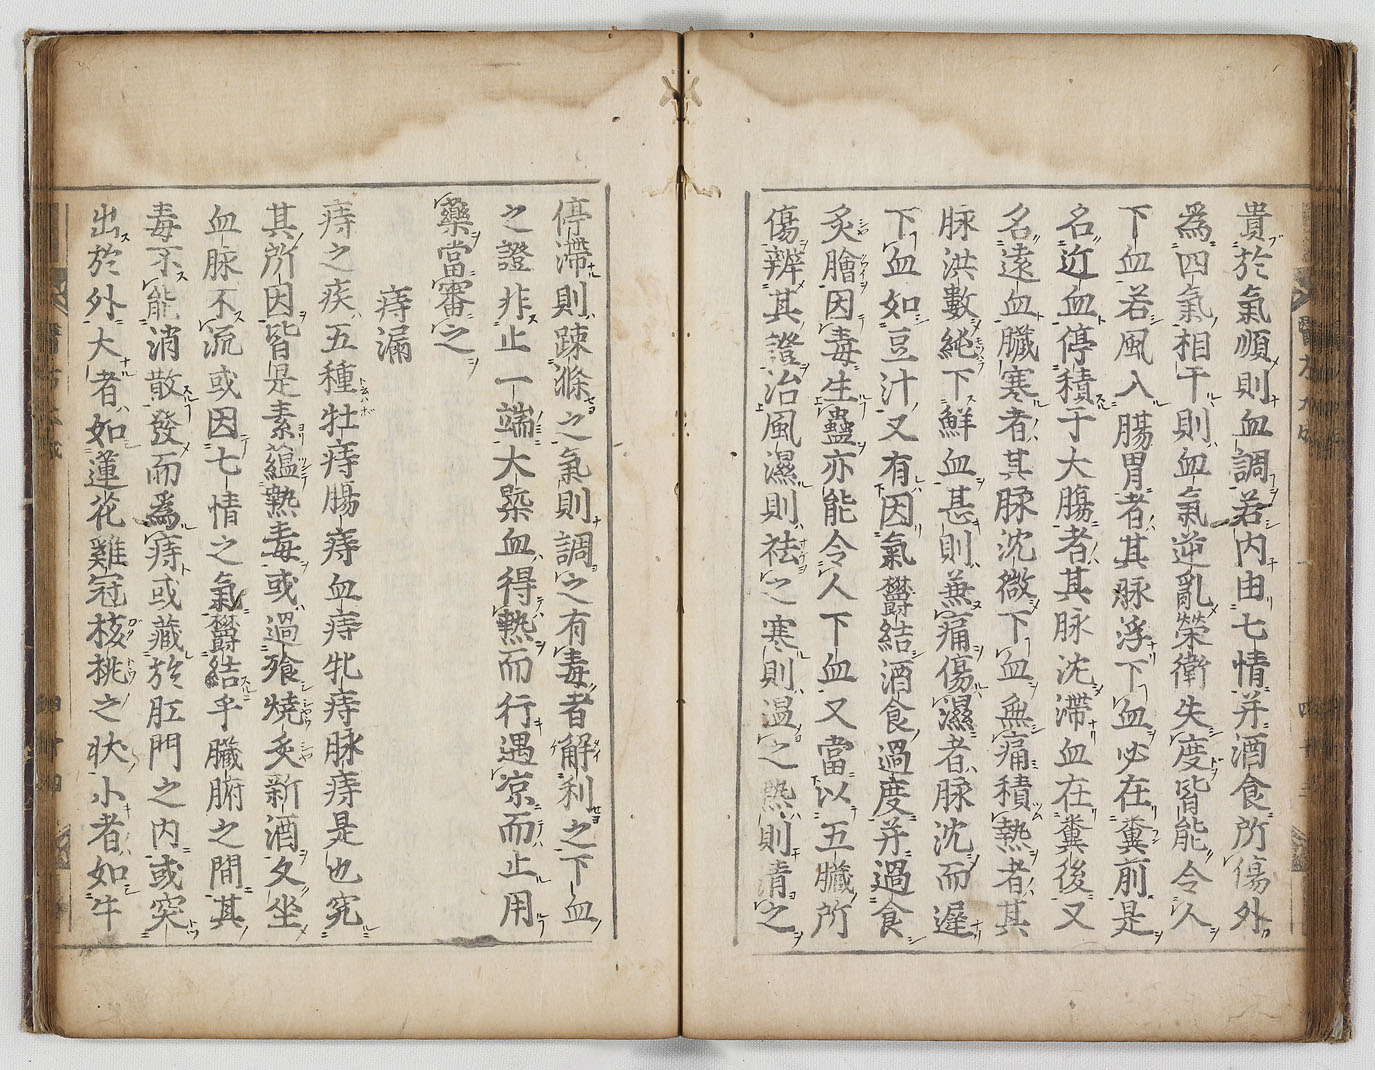 貴於氣順則血調若内由七情并酒食所傷外
為四氣相干則血氣逆亂榮衛失度皆能令人
下血若風入腸胃者其脉浮下血必在糞前是
名近血停積于大腸者其脉沈滯血在糞後又
名遠血臟寒者其脉沈微下血無痛積熱者其
脉洪數純下鮮血甚則兼痛傷濕者脉沈而遲
下血如豆汁又有因氣欝結酒食過度并過食
炙膾因毒生蠱亦能令人下血又當以五臟所
傷辨其證治風濕則祛之寒則温之熱則清之
停滯則踈滌之氣則調之有毒者解利之下血
之證非止一端大槩血得熱而行遇凉而止用
藥當審之
痔漏
痔之疾五種牡痔腸痔血痔牝痔脉痔是也究
其所因皆是素蘊熱毒或過飡燒炙新酒久坐
血脉不流或因七情之氣欝結乎臟腑之間其
毒不能消散發而為痔或藏於肛門之内或突
出於外大者如蓮花雞冠核桃之狀小者如牛